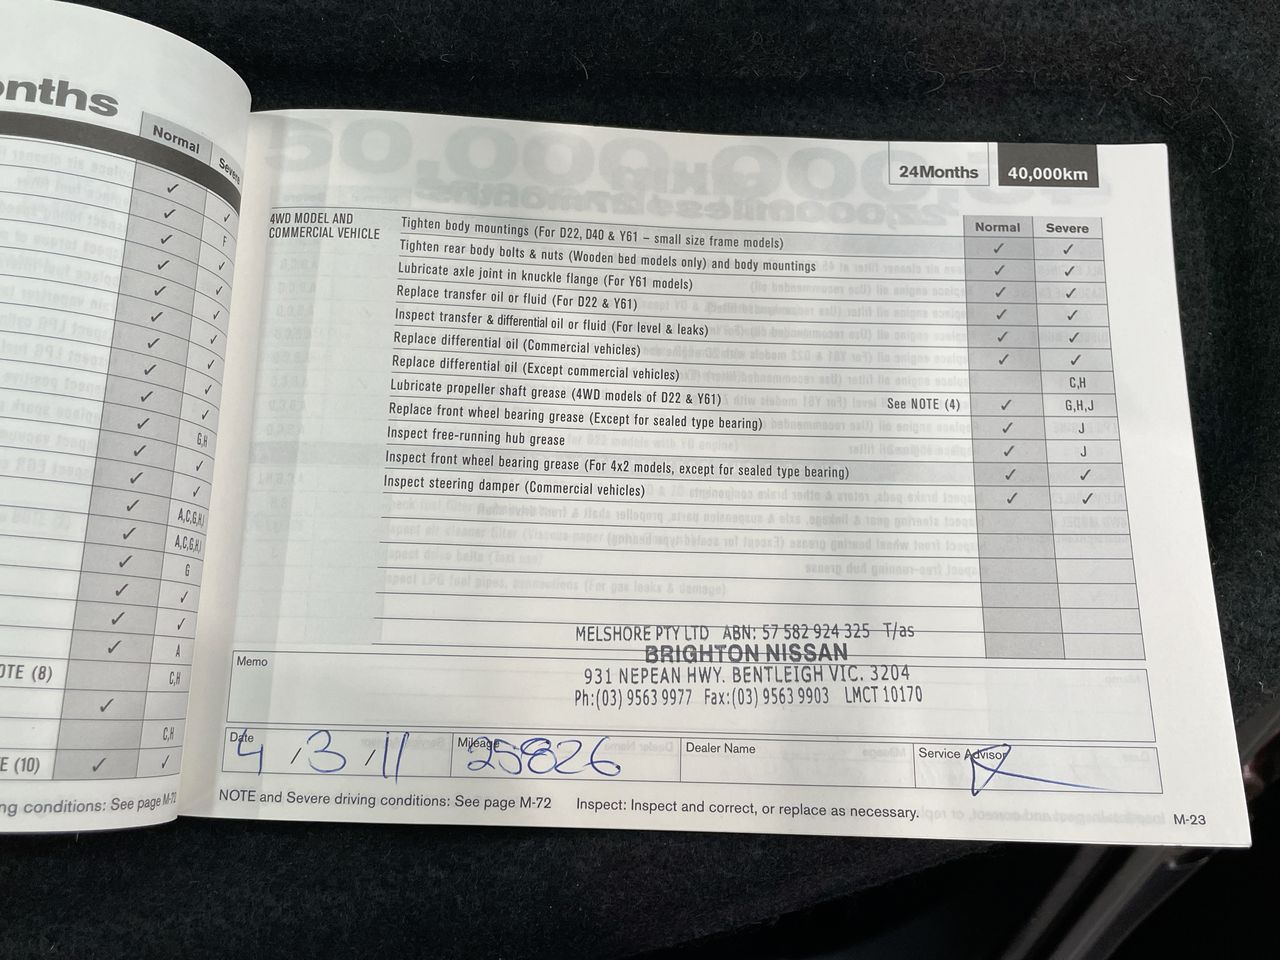 onths
Normal
F
G,H
A,C,G,H,J
A,C,G,H,J
G
A
OTE (8) C,H
C,H
E (10)
ng conditions: See page M-72
24Months 40,000km
4WD MODEL AND
COMMERCIAL VEHICLE
Normal Severe
Tighten body mountings (For D22, D40 & Y61 – small size frame models) ✓ ✓
Tighten rear body bolts & nuts (Wooden bed models only) and body mountings ✓ ✓
Lubricate axle joint in knuckle flange (For Y61 models) ✓ ✓
Replace transfer oil or fluid (For D22 & Y61) ✓ ✓
Inspect transfer & differential oil or fluid (For level & leaks) ✓ ✓
Replace differential oil (Commercial vehicles) ✓ ✓
Replace differential oil (Except commercial vehicles) C,H
Lubricate propeller shaft grease (4WD models of D22 & Y61) See NOTE (4) ✓ G,H,J
Replace front wheel bearing grease (Except for sealed type bearing) ✓ J
Inspect free-running hub grease ✓ J
Inspect front wheel bearing grease (For 4x2 models, except for sealed type bearing) ✓ ✓
Inspect steering damper (Commercial vehicles) ✓ ✓
MELSHORE PTY LTD ABN: 57 582 924 325 T/as
BRIGHTON NISSAN
931 NEPEAN HWY. BENTLEIGH VIC. 3204
Ph:(03) 9563 9977 Fax:(03) 9563 9903 LMCT 10170
Memo
Date 4.3.11 Mileage 25826 Dealer Name Service Advisor
NOTE and Severe driving conditions: See page M-72 Inspect: Inspect and correct, or replace as necessary.
M-23